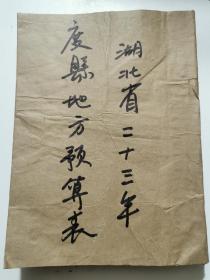 湖北省二十三年
度縣地方预算表